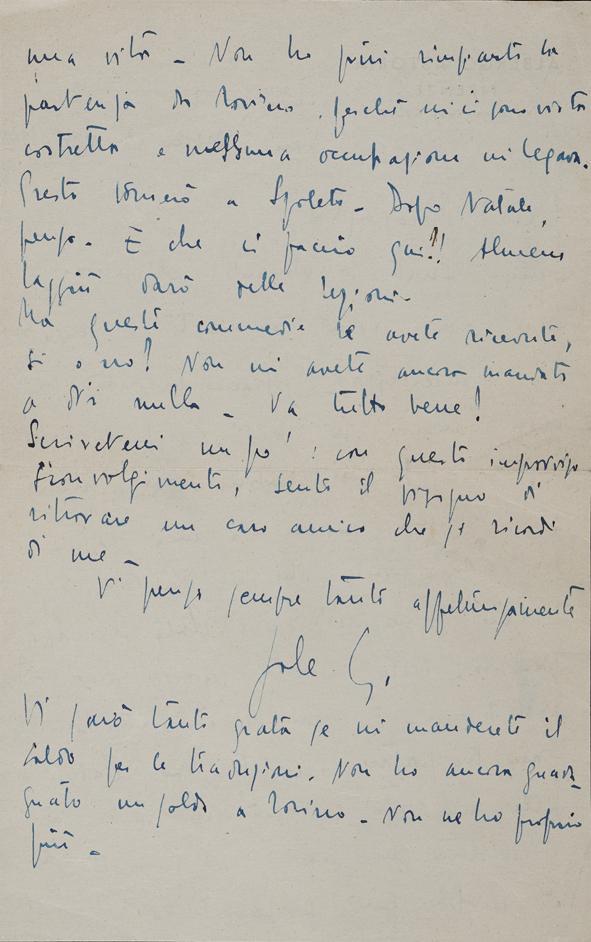 una vita - Non ho più rimpianti la
partenza da Torino, perché mi ci sono vista
costretta e nessuna occupazione mi legava.
Presto tornerò a Spoleto - Dopo Natale,
penso - E che ci faccio qui?! Almeno
laggiù darò delle lezioni -
Ma queste commedie le avete ricevute,
sì o no? Non mi avete ancora mandato
a dir nulla - Va tutto bene?
Scrivetemi un po' : con questo improvviso
sconvolgimento, sento il bisogno di
ritrovare un caro amico che si ricordi
di me -
Vi penso sempre tanto affettuosamente
Jole G.
Vi sarò tanto grata se mi manderete il
saldo per le traduzioni. Non ho ancora guada-
gnato un soldo a Torino - Non ne ho proprio
più -